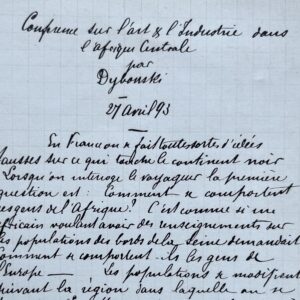 Conference sur l'art & l'Industrie dans
l'afrique Centrale
par
Dybouski
27 avril 93
En France on se fait toutes sortes d'idées
fausses sur ce qui touche le continent noir
Lorsqu'on interroge le voyageur la première
question est : Comment se comportent
les gens de l'Afrique? C'est comme si un
africain voulant avoir des renseignements sur
les populations des bords de la Seine demandait
comment se comportent ils les gens de
l'Europe — Les populations se modifient
suivant la région dans laquelle on se